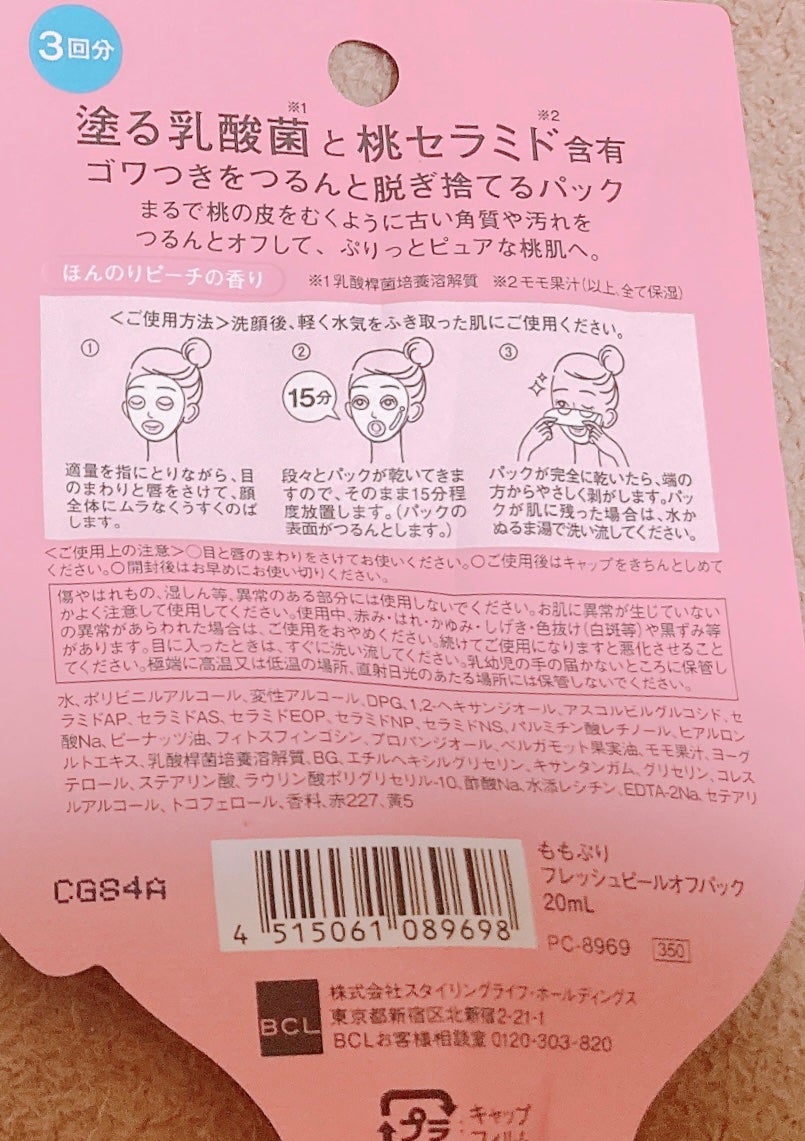 3回分
塗る乳酸菌※1と桃セラミド※2含有
ゴワつきをつるんと脱ぎ捨てるパック
まるで桃の皮をむくように古い角質や汚れを
つるんとオフして、ぷりっとピュアな桃肌へ。
ほんのりピーチの香り ※1乳酸桿菌培養溶解質 ※2モモ果汁(以上、全て保湿)
<ご使用方法>洗顔後、軽く水気をふき取った肌にご使用ください。
①
適量を指にとりながら、目
のまわりと唇をさけて、顔
全体にムラなくうすくのば
します。
②
15分
段々とパックが乾いてきま
すので、そのまま15分程
度放置します。(パックの
表面がつるんとします。)
③
パックが完全に乾いたら、端の
方からやさしく剥がします。パッ
クが肌に残った場合は、水か
ぬるま湯で洗い流してください。
<ご使用上の注意>○目と唇のまわりをさけてお使いください。○ご使用後はキャップをきちんとしめて
ください。○開封後はお早めにお使い切りください。
傷やはれもの、湿しん等、異常のある部分には使用しないでください。お肌に異常が生じていない
かよく注意して使用してください。使用中、赤み・はれ・かゆみ・しげき・色抜け(白斑等)や黒ずみ等
の異常があらわれた場合は、ご使用をおやめください。続けてご使用になりますと悪化させること
があります。目に入ったときは、すぐに洗い流してください。乳幼児の手の届かないところに保管し
てください。極端に高温又は低温の場所、直射日光のあたる場所には保管しないでください。
水、ポリビニルアルコール、変性アルコール、DPG、1,2-ヘキサンジオール、アスコルビルグルコシド、セ
ラミドAP、セラミドAS、セラミドEOP、セラミドNP、セラミドNS、パルミチン酸レチノール、ヒアルロン
酸Na、ピーナッツ油、フィトスフィンゴシン、プロパンジオール、ベルガモット果実油、モモ果汁、ヨーグ
ルトエキス、乳酸桿菌培養溶解質、BG、エチルヘキシルグリセリン、キサンタンガム、グリセリン、コレス
テロール、ステアリン酸、ラウリン酸ポリグリセリル-10、酢酸Na、水添レシチン、EDTA-2Na、セテアリ
ルアルコール、トコフェロール、香料、赤227、黄5
CGS4A
4 515061 089698
ももぷり
フレッシュピールオフパック
20mL
PC-8969 350
BCL
株式会社スタイリングライフ・ホールディングス
東京都新宿区北新宿2-21-1
BCLお客様相談室 0120-303-820
プラ
:キャップ
フィルム